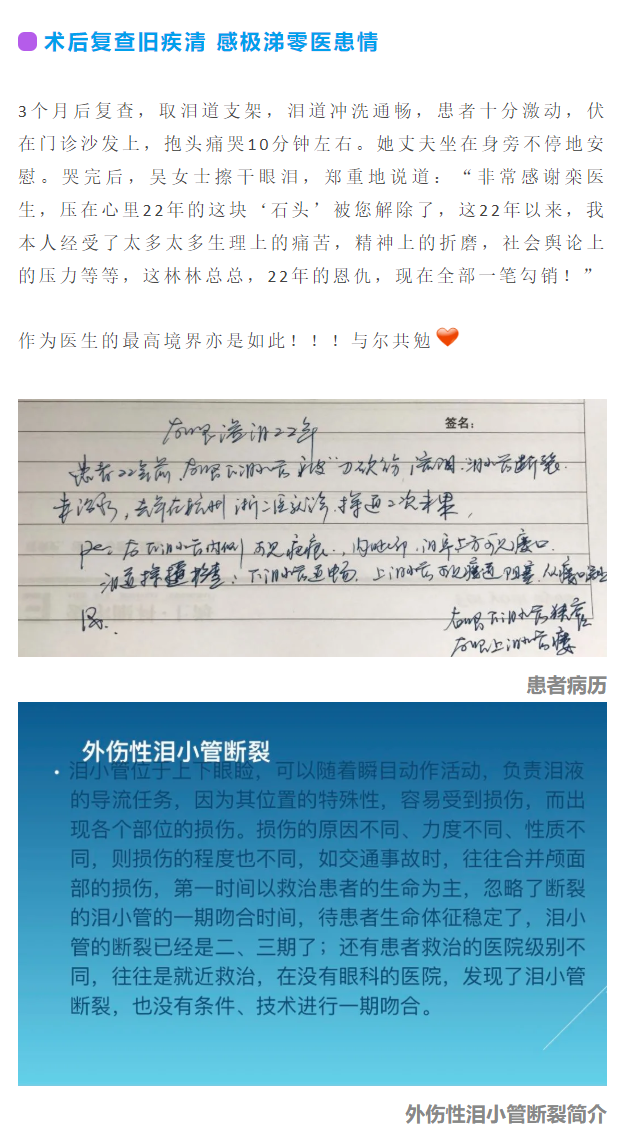 术后复查旧疾清 感极涕零医患情
3个月后复查，取泪道支架，泪道冲洗通畅，患者十分激动，伏
在门诊沙发上，抱头痛哭10分钟左右。她丈夫坐在身旁不停地安
慰。哭完后，吴女士擦干眼泪，郑重地说道：“非常感谢栾医
生，压在心里22年的这块‘石头’被您解除了，这22年以来，我
本人经受了太多太多生理上的痛苦，精神上的折磨，社会舆论上
的压力等等，这林林总总，22年的恩仇，现在全部一笔勾销！”
作为医生的最高境界亦是如此！！！与尔共勉
签名：
右眼溢泪22年
患者22年前，右眼下泪小管
泪小管断裂
去年在杭州浙二医就诊，探通2次未果，
右下泪小管内侧可见疤痕，
泪道探通检查：下泪小管通畅，上泪小管可见瘘道阻塞，从瘘口
右眼下泪小管狭窄
右眼上泪小管瘘
患者病历
外伤性泪小管断裂
• 泪小管位于上下眼睑，可以随着瞬目动作活动，负责泪液
的导流任务，因为其位置的特殊性，容易受到损伤，而出
现各个部位的损伤。损伤的原因不同、力度不同、性质不
同，则损伤的程度也不同，如交通事故时，往往合并颅面
部的损伤，第一时间以救治患者的生命为主，忽略了断裂
的泪小管的一期吻合时间，待患者生命体征稳定了，泪小
管的断裂已经是二、三期了；还有患者救治的医院级别不
同，往往是就近救治，在没有眼科的医院，发现了泪小管
断裂，也没有条件、技术进行一期吻合。
外伤性泪小管断裂简介